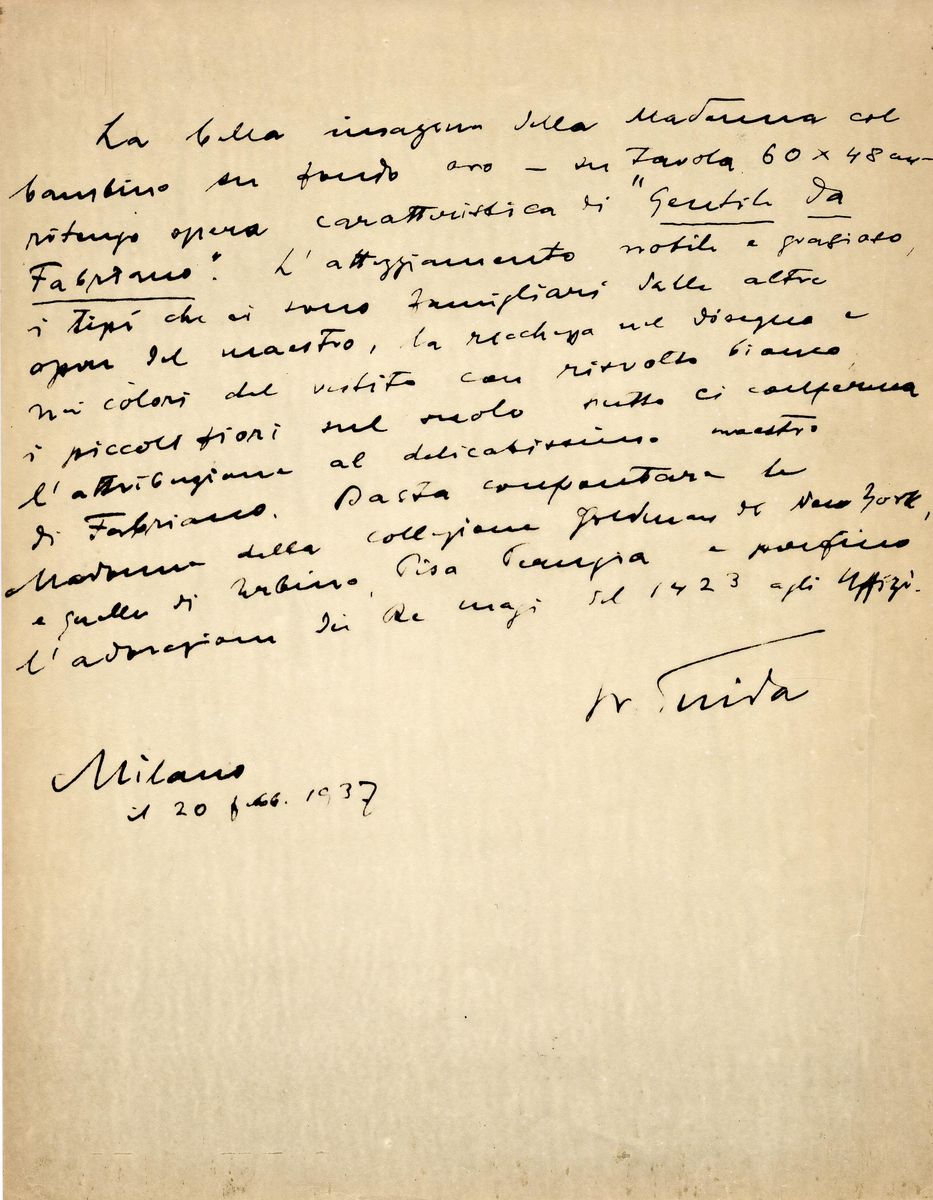 La bella imagine della Madonna col
bambino su fondo oro - su tavola 60 x 48 cm -
ritengo opera caratteristica di "Gentile da
Fabriano". L'atteggiamento nobile e grazioso,
i tipi che ci sono famigliari dalle altre
opere del maestro, la ricchezza nel disegno e
nei colori del vestito con risvolto bianco,
i piccoli fiori sul suolo tutto ci conferma
l'attribuzione al delicatissimo maestro
di Fabriano. Basta confrontare la
Madonna della collezione Goldman di New York,
e quelle di Urbino, Pisa Perugia e perfino
l'adorazione dei Re magi del 1423 agli Uffizi.
Milano
il 20 febb. 1937